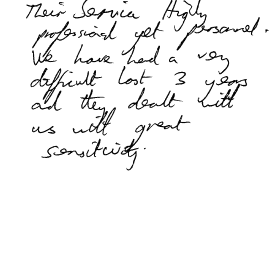 Their Service Highly
professional yet personal.
We have had a very
difficult last 3 years
and they dealt with
us with great
sensitivity.